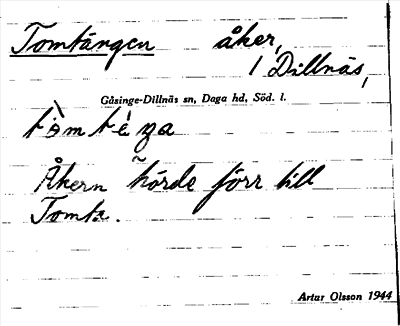 Tomtängen åker,
1 Dillnäs,
Gåsinge-Dillnäs sn, Daga hd, Söd. l.
Åkern hörde förr till
Tomta.
Artur Olsson 1944